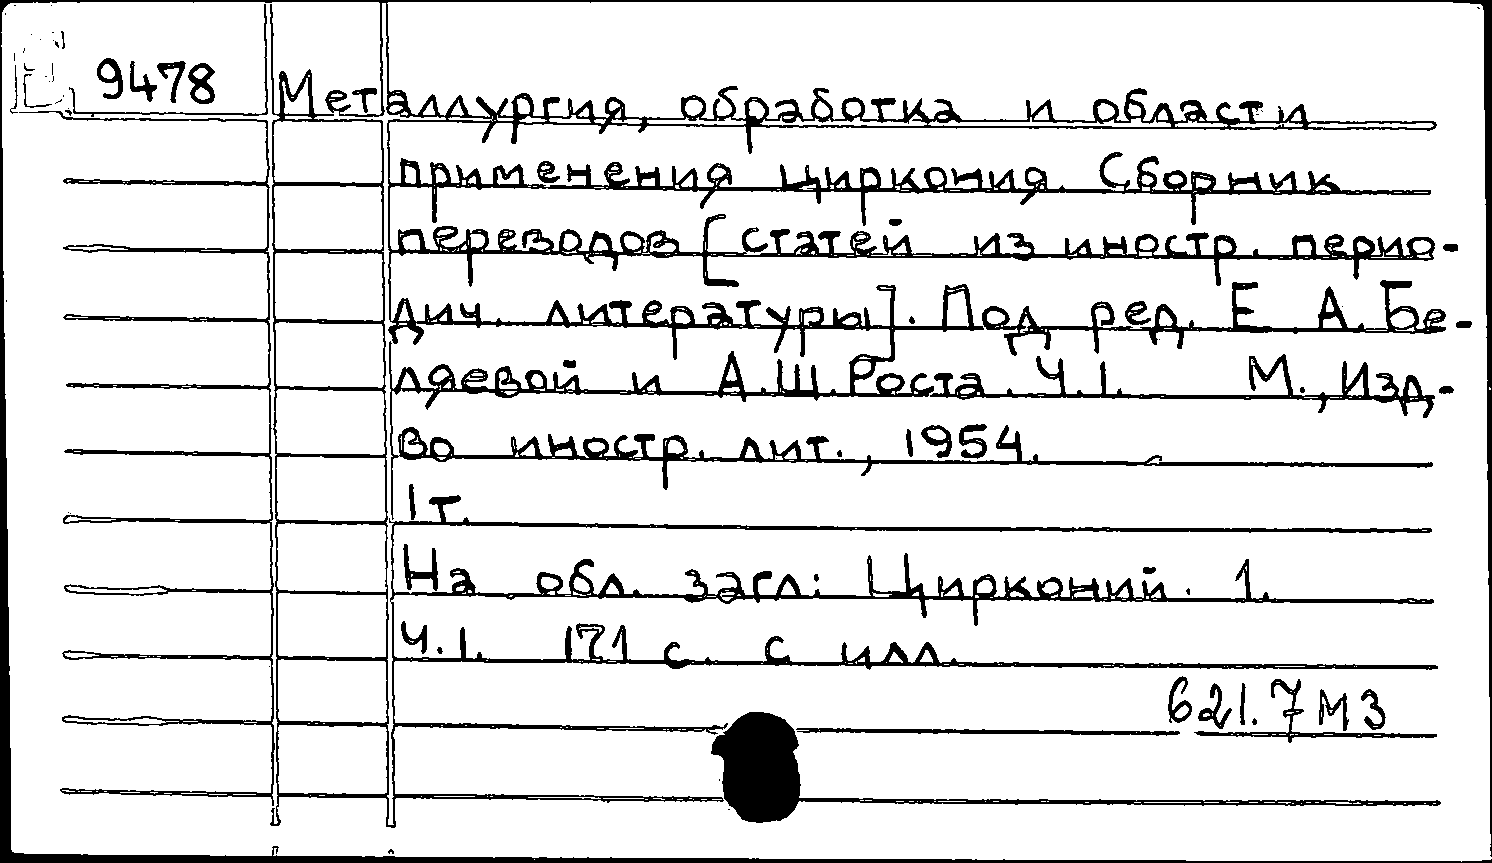 E 9478 Металлургия, обработка и области
применения циркония. Сборник
переводов [статей из иностр. перио-
дич. литературы]. Под ред. Е. А. Бе-
ляевой и А.Ш.Роста. Ч.1. М., Изд-
во иностр. лит., 1954.
1 т.
На обл. загл: Цирконий. 1.
Ч.1. 171 с. с илл.
621.7 М 3